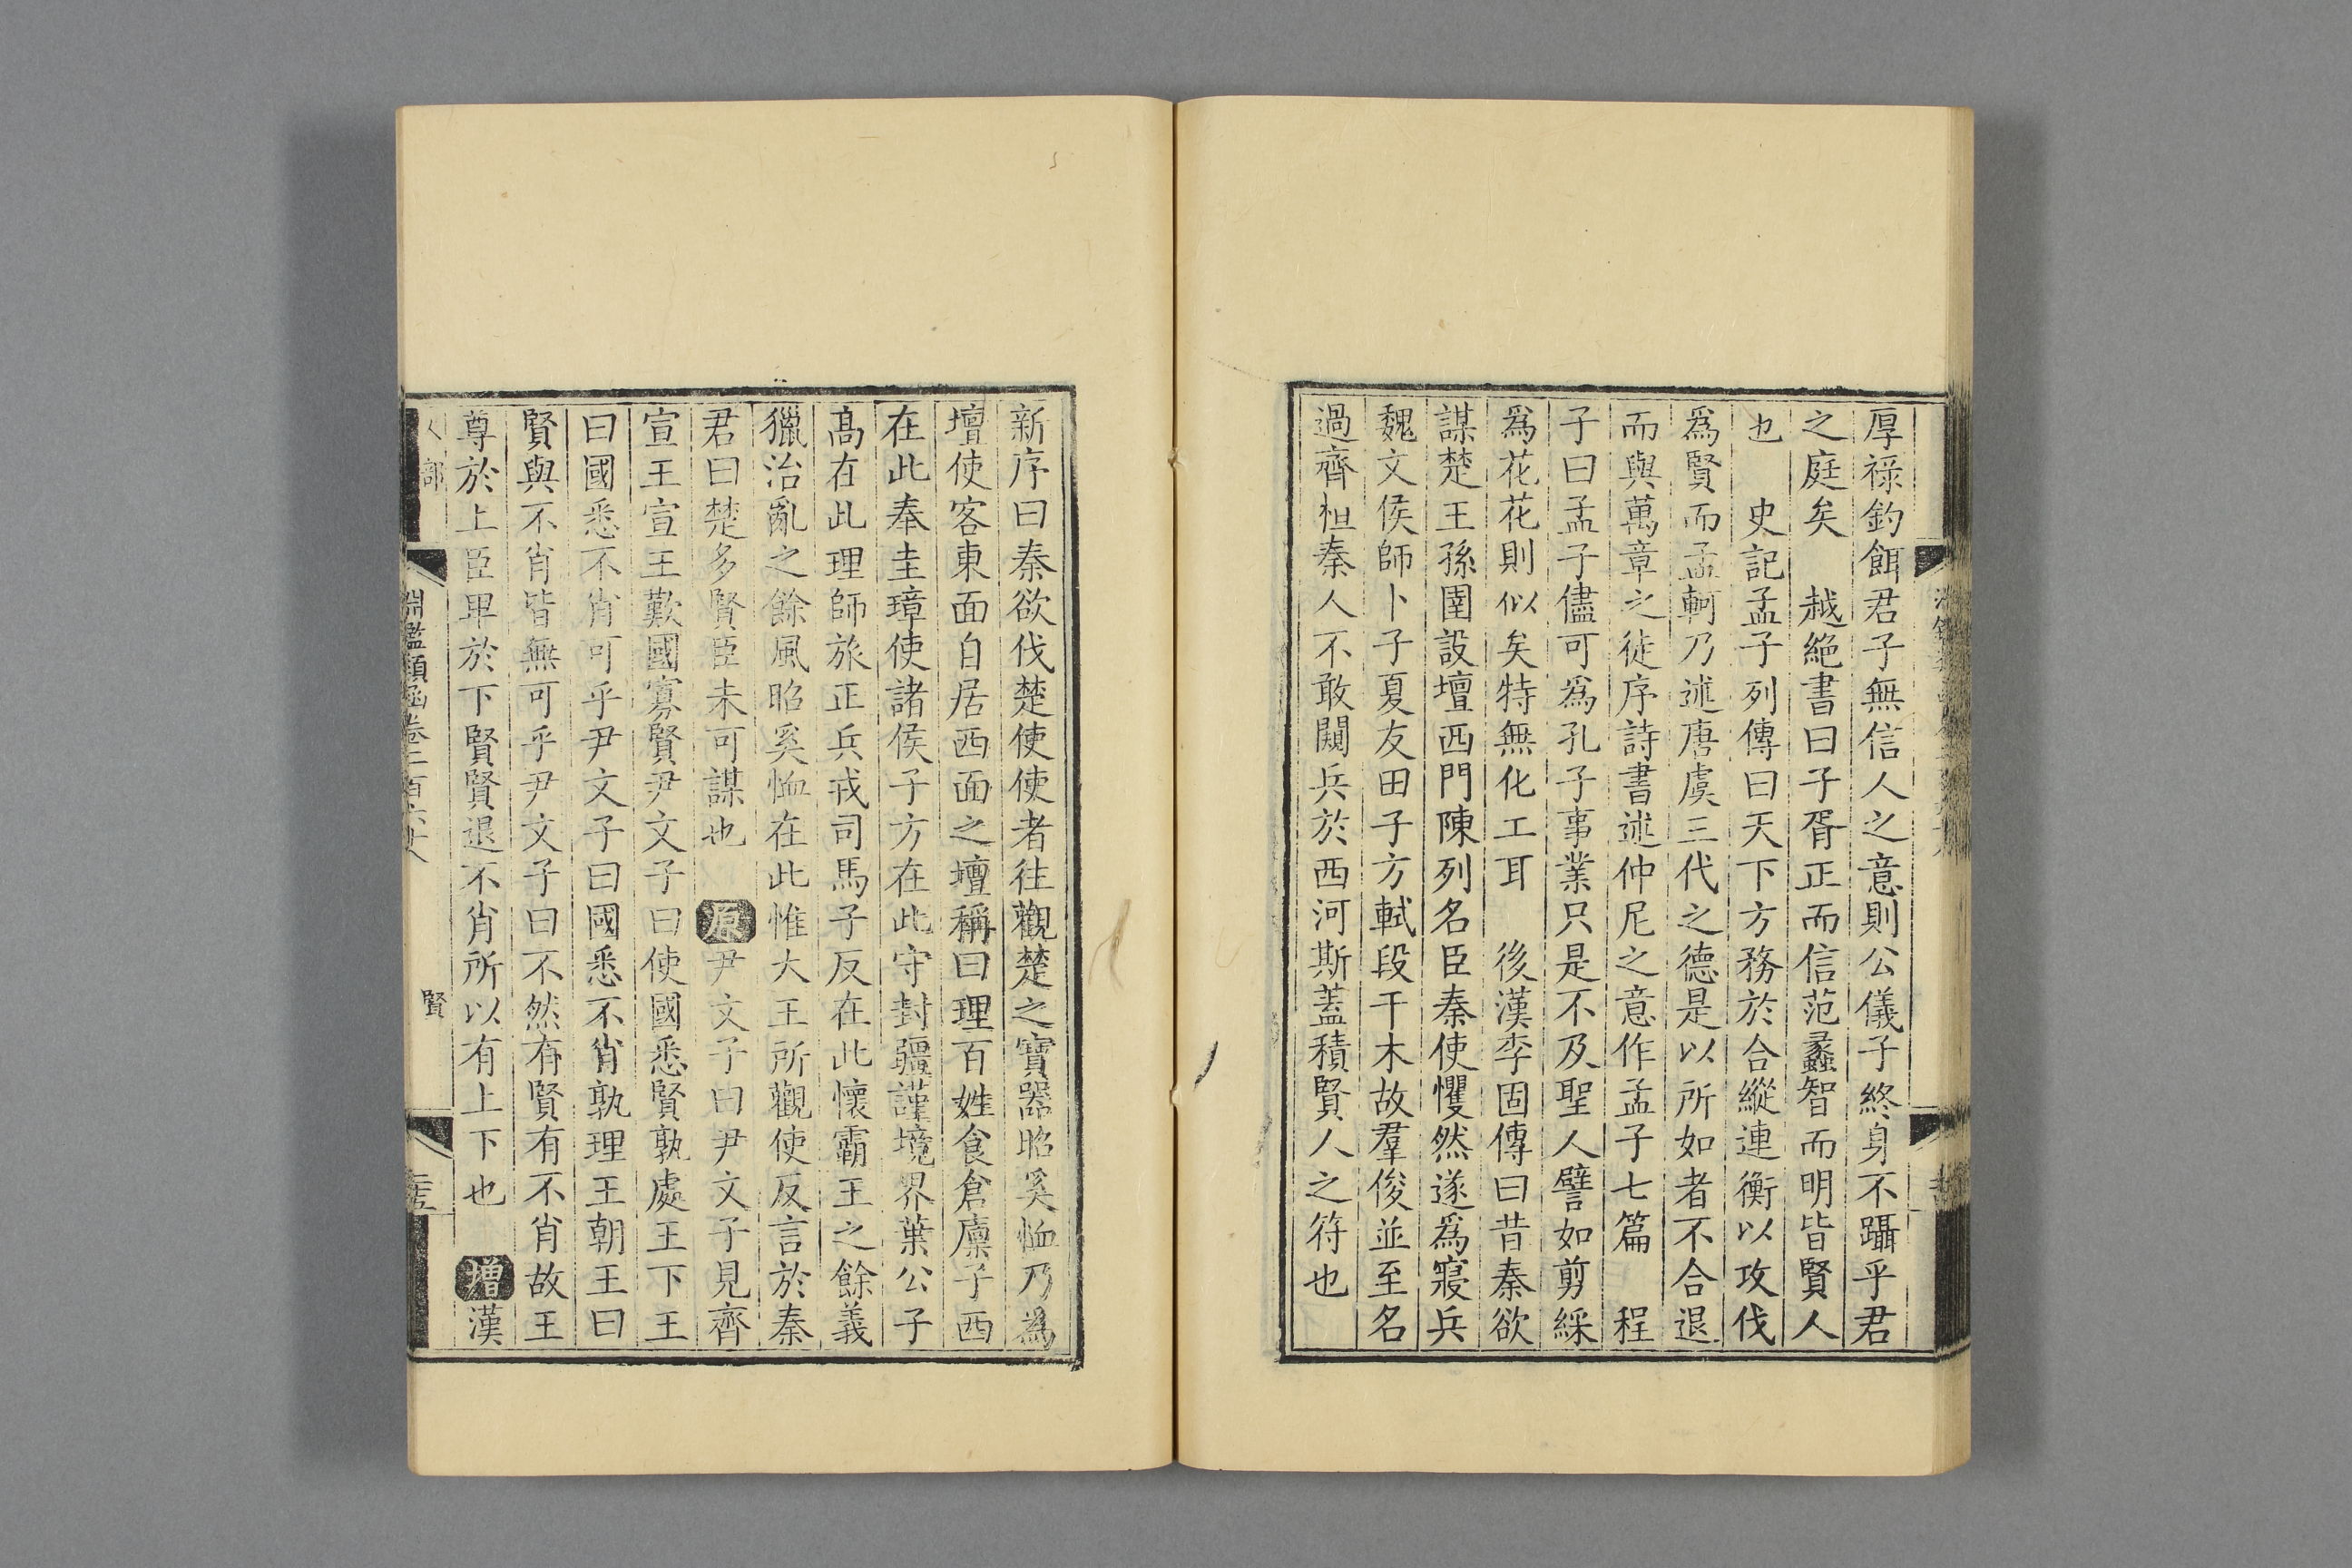 厚祿釣餌君子無信人之意則公儀子終身不躡乎君
之庭矣　越絶書曰子胥正而信范蠡智而明皆賢人
也　史記孟子列傳曰天下方務於合縱連衡以攻伐
爲賢而孟軻乃述唐虞三代之德是以所如者不合退
而與萬章之徒序詩書述仲尼之意作孟子七篇　程
子曰孟子儘可爲孔子事業只是不及聖人譬如剪綵
爲花花則似矣特無化工耳　後漢李固傳曰昔秦欲
謀楚王孫圉設壇西門陳列名臣秦使戄然遂爲寢兵
魏文侯師卜子夏友田子方軾段干木故羣俊並至名
過齊桓秦人不敢闚兵於西河斯蓋積賢人之符也
新序曰秦欲伐楚使使者往觀楚之寶器昭奚恤乃為
壇使客東面自居西面之壇稱曰理百姓食倉廩子西
在此奉圭璋使諸侯子方在此守封疆謹境界葉公子
髙在此理師旅正兵戎司馬子反在此懷霸王之餘義
獵治亂之餘風昭奚恤在此惟大王所觀使反言於秦
君曰楚多賢臣未可謀也　原尹文子曰尹文子見齊
宣王宣王歎國寡賢尹文子曰使國悉賢孰處王下王
曰國悉不肖可乎尹文子曰國悉不肖孰理王朝王曰
賢與不肖皆無可乎尹文子曰不然有賢有不肖故王
尊於上臣卑於下賢賢退不肖所以有上下也　增漢
人部
淵鑑類函卷二百六十八
賢